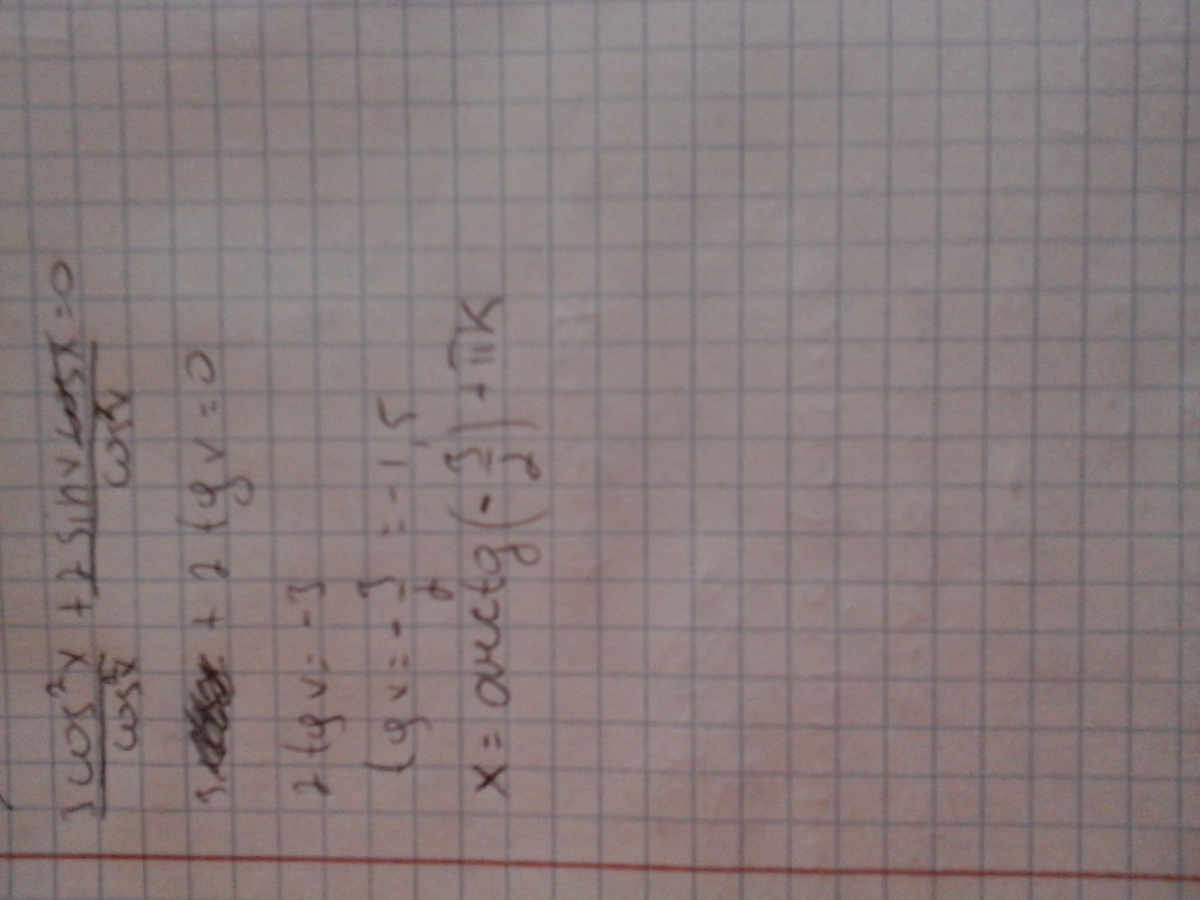 3cos²x/cos²x + 2sinxcosx/cos²x =0
3 + 2 tg x = 0
2 tg x = -3
tg x = -3/2 = -1,5
x = arctg(-3/2) + πk